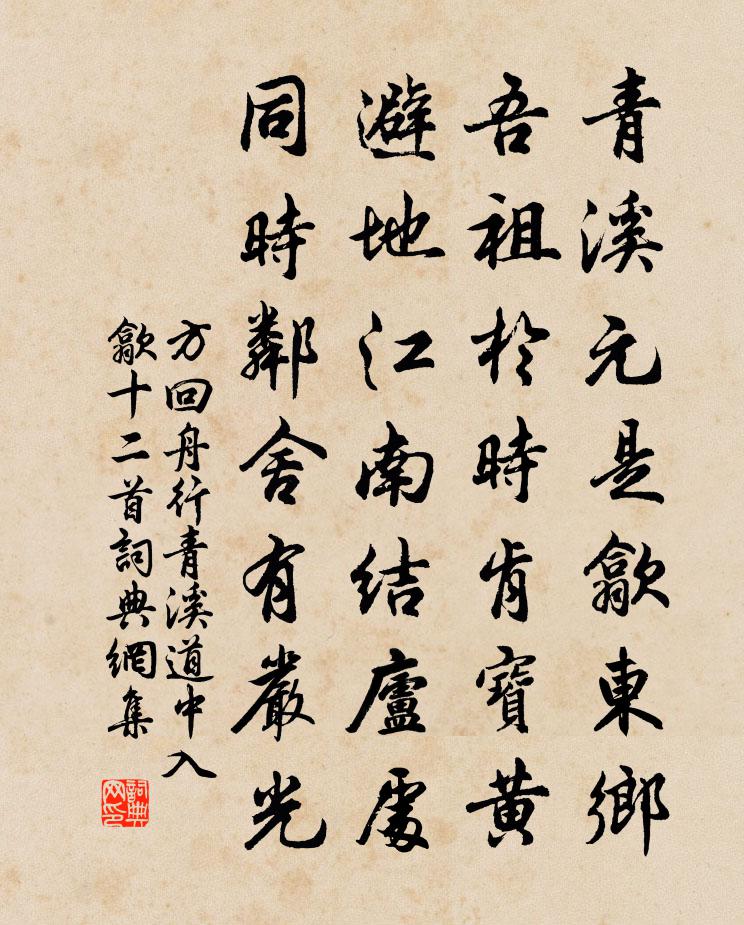 青溪元是歙東鄉
吾祖於時肯寶黃
避地江南結廬處
同時鄰舍有嚴光
方回舟行青溪道中入
歙十二首詞典網集
詞典网印